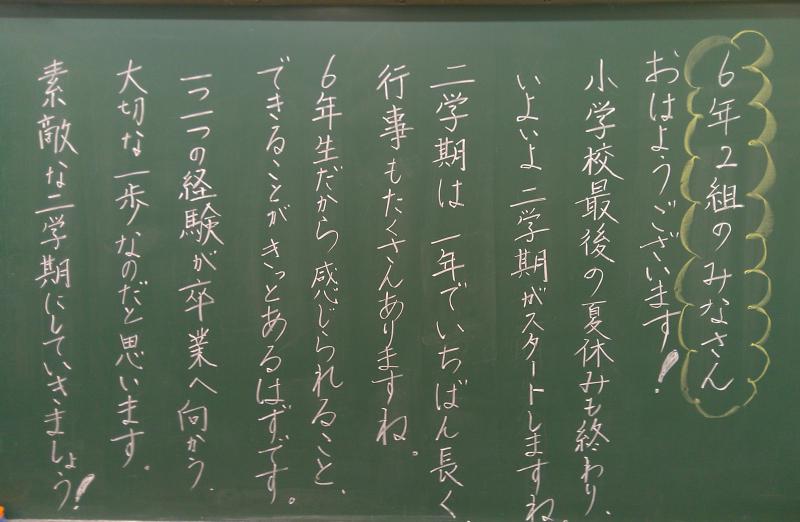 6年2組のみなさん
おはようございます!
小学校最後の夏休みも終わり、
いよいよ二学期がスタートしますね。
二学期は一年でいちばん長く、
行事もたくさんありますね。
6年生だから感じられること、
できることがきっとあるはずです。
一つ一つの経験が卒業へ向かう、
大切な一歩なのだと思います。
素敵な二学期にしていきましょう!